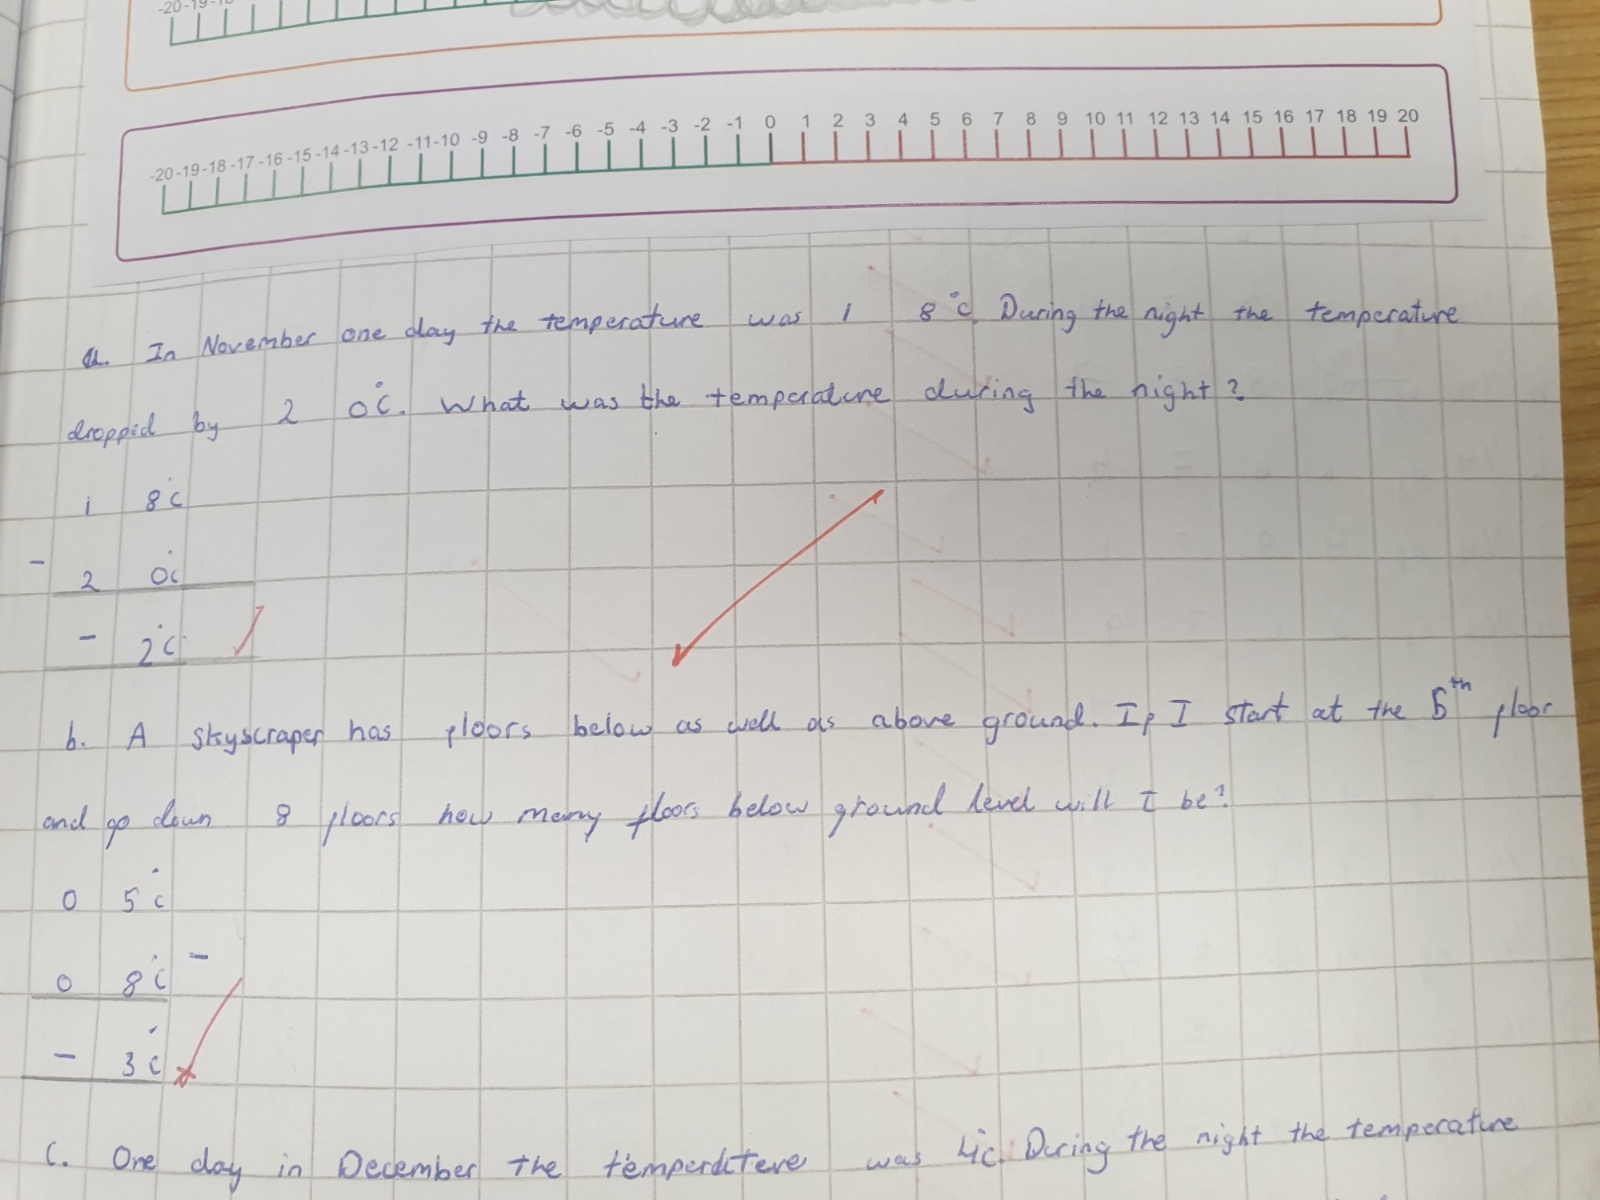 -20 -19 -18
-20 -19 -18 -17 -16 -15 -14 -13 -12 -11 -10 -9 -8 -7 -6 -5 -4 -3 -2 -1 0 1 2 3 4 5 6 7 8 9 10 11 12 13 14 15 16 17 18 19 20
a. In November one day the temperature was 1 8°c. During the night the temperature
dropped by 2 0°c. What was the temperature during the night?
1 8°c
- 2 0°c
- 2°c
b. A skyscraper has floors below as well as above ground. If I start at the 5th floor
and go down 8 floors how many floors below ground level will I be?
0 5°c
0 8°c -
- 3°c
c. One day in December the temperature was 4°c. During the night the temperature